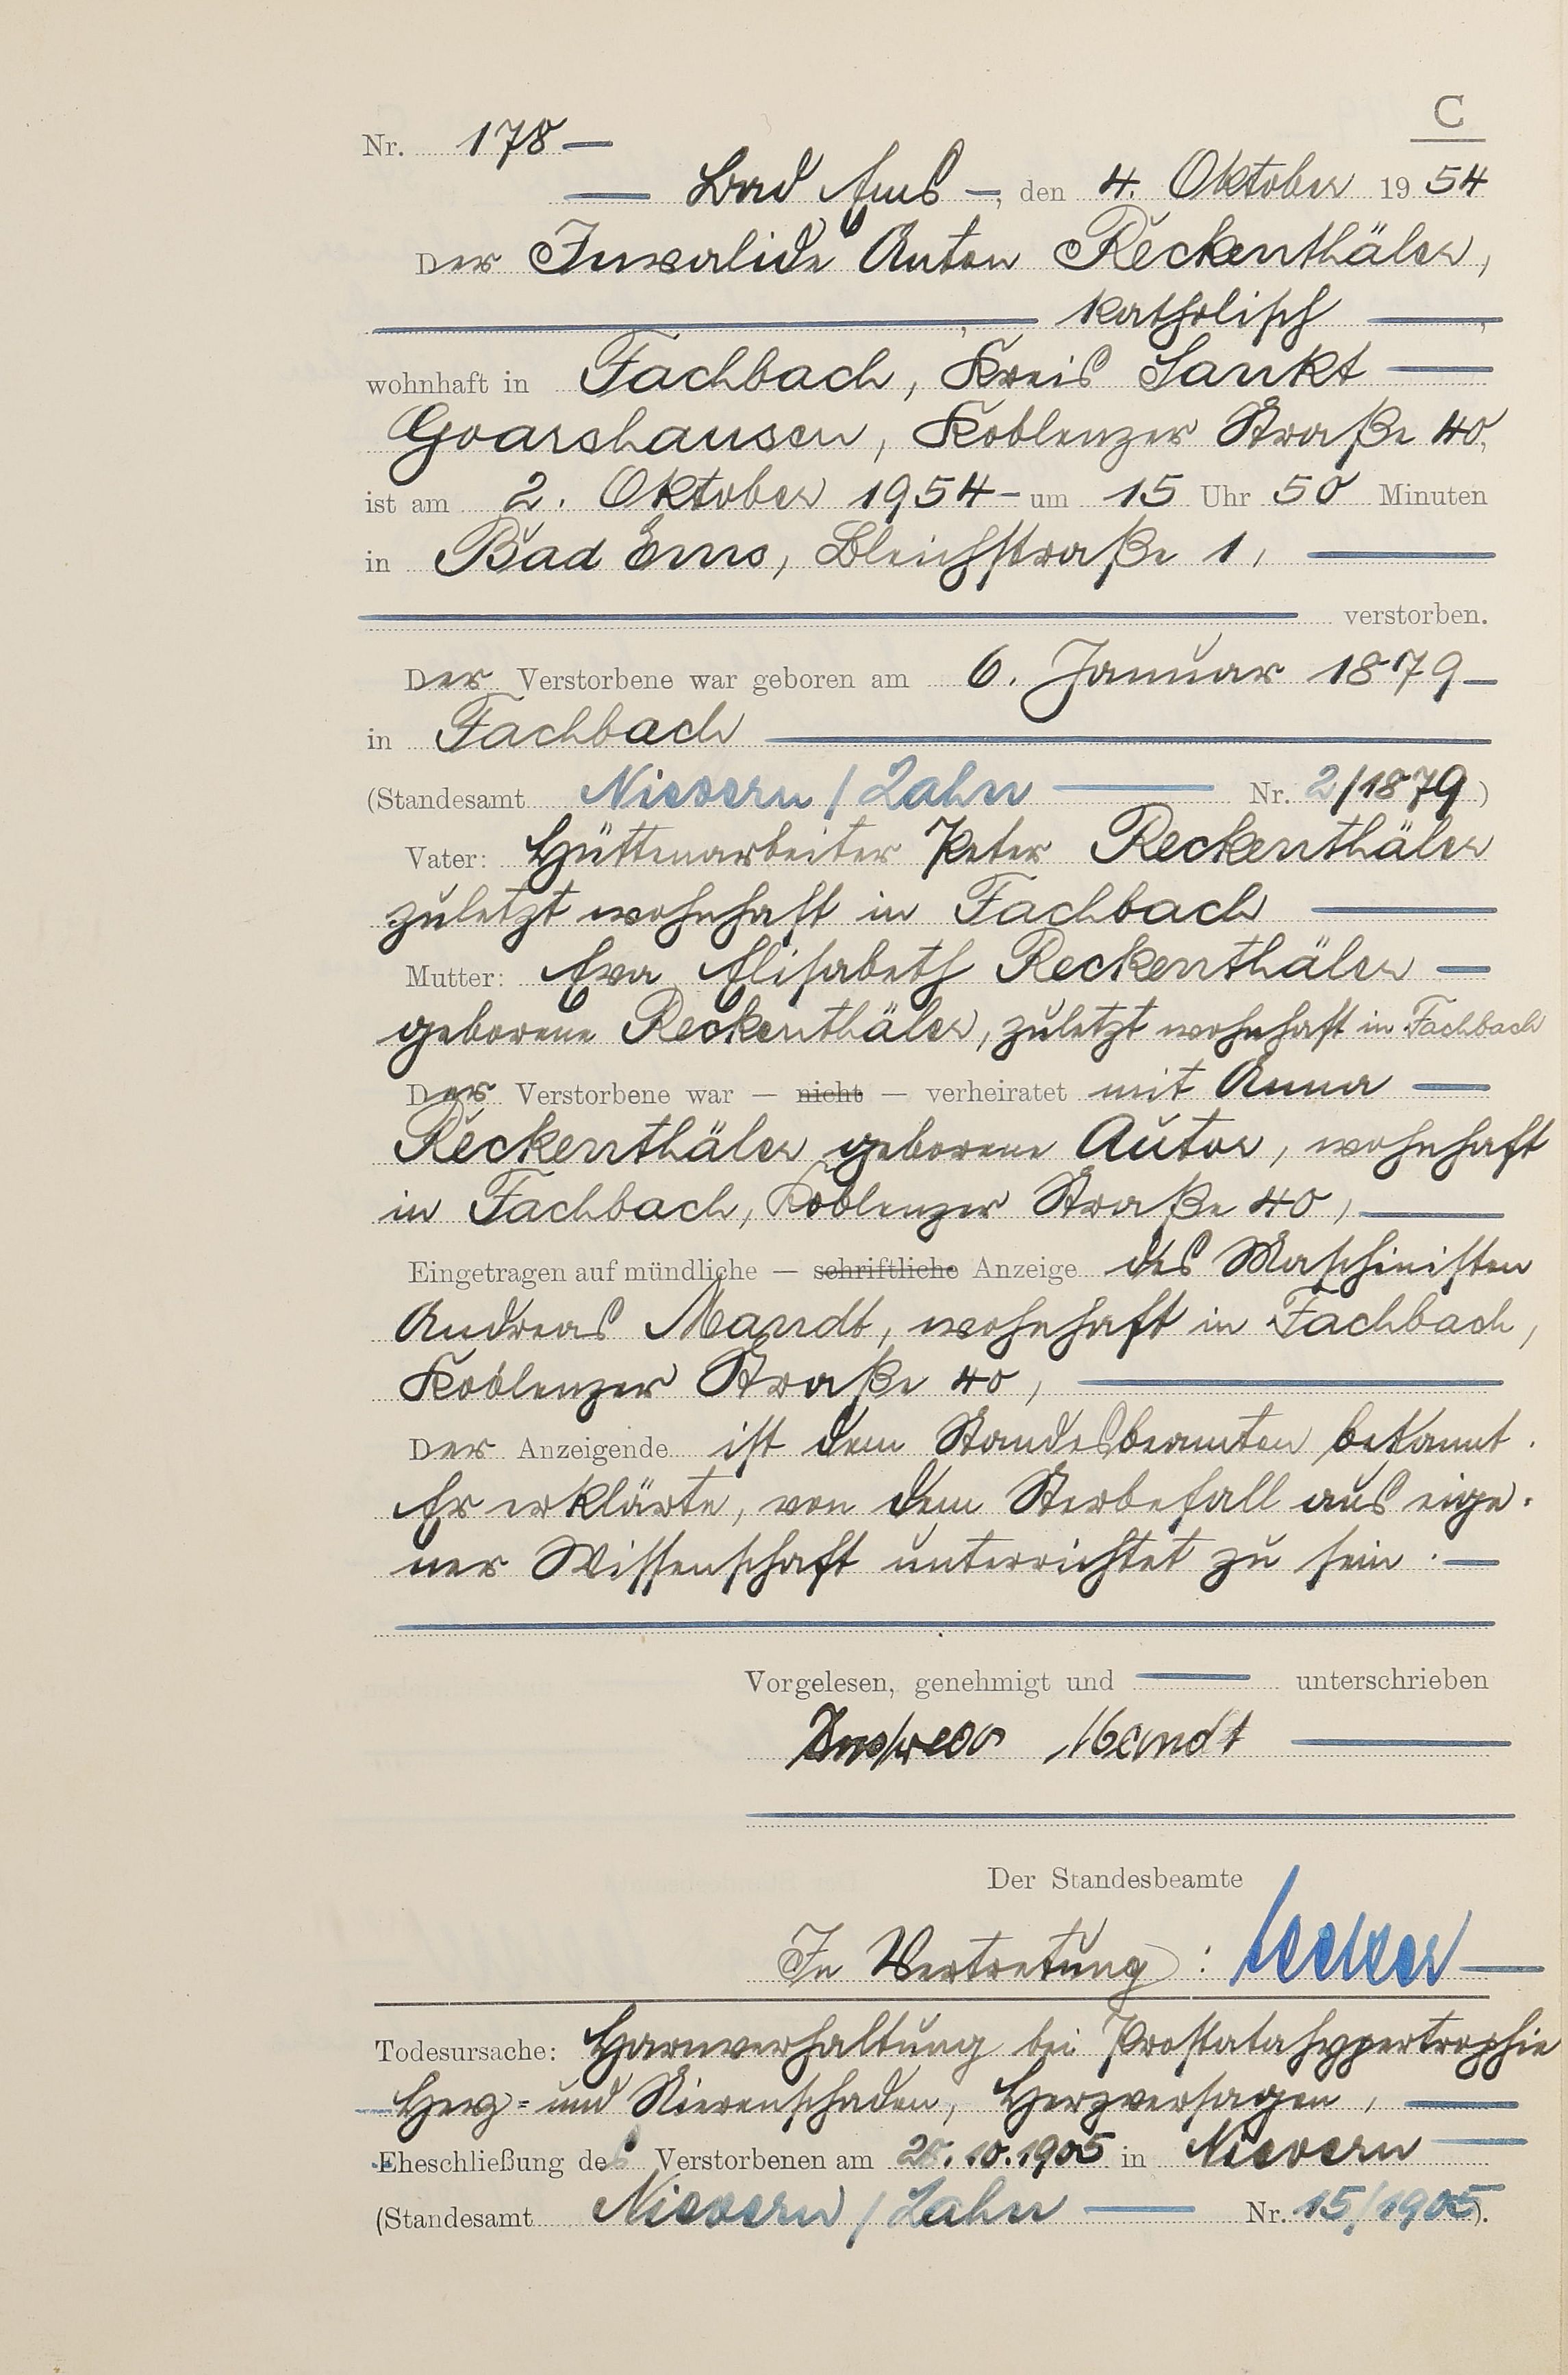 C
Nr. 178 —
— Bad Ems —, den 4. Oktober 1954
Der Invalide Anton Reckenthäler,
—, katholisch —,
wohnhaft in Fachbach, Kreis Sankt —
Goarshausen, Koblenzer Straße 40,
ist am 2. Oktober 1954 - um 15 Uhr 50 Minuten
in Bad Ems, Bleichstraße 1, —
— verstorben.
Der Verstorbene war geboren am 6. Januar 1879 —
in Fachbach —
(Standesamt Nievern / Lahn — Nr. 2/1879)
Vater: Hüttenarbeiter Peter Reckenthäler
zuletzt wohnhaft in Fachbach —
Mutter: Eva Elisabeth Reckenthäler —
geborene Reckenthäler, zuletzt wohnhaft in Fachbach
Der Verstorbene war — nicht — verheiratet mit Anna —
Reckenthäler geborene Autor, wohnhaft
in Fachbach, Koblenzer Straße 40, —
Eingetragen auf mündliche — schriftliche Anzeige des Maschinisten
Andreas Mandt, wohnhaft in Fachbach,
Koblenzer Straße 40, —
Der Anzeigende ist dem Standesbeamten bekannt.
Er erklärte, von dem Sterbefall aus eige-
ner Wissenschaft unterrichtet zu sein. —
Vorgelesen, genehmigt und — unterschrieben
Andreas Mandt —
Der Standesbeamte
In Vertretung: —
Todesursache: Harnverhaltung bei Prostatahypertrophie
Herz- und Nierenschaden, Herzversagen, —
Eheschließung des Verstorbenen am 28.10.1905 in Nievern —
(Standesamt Nievern / Lahn — Nr. 15/1905).